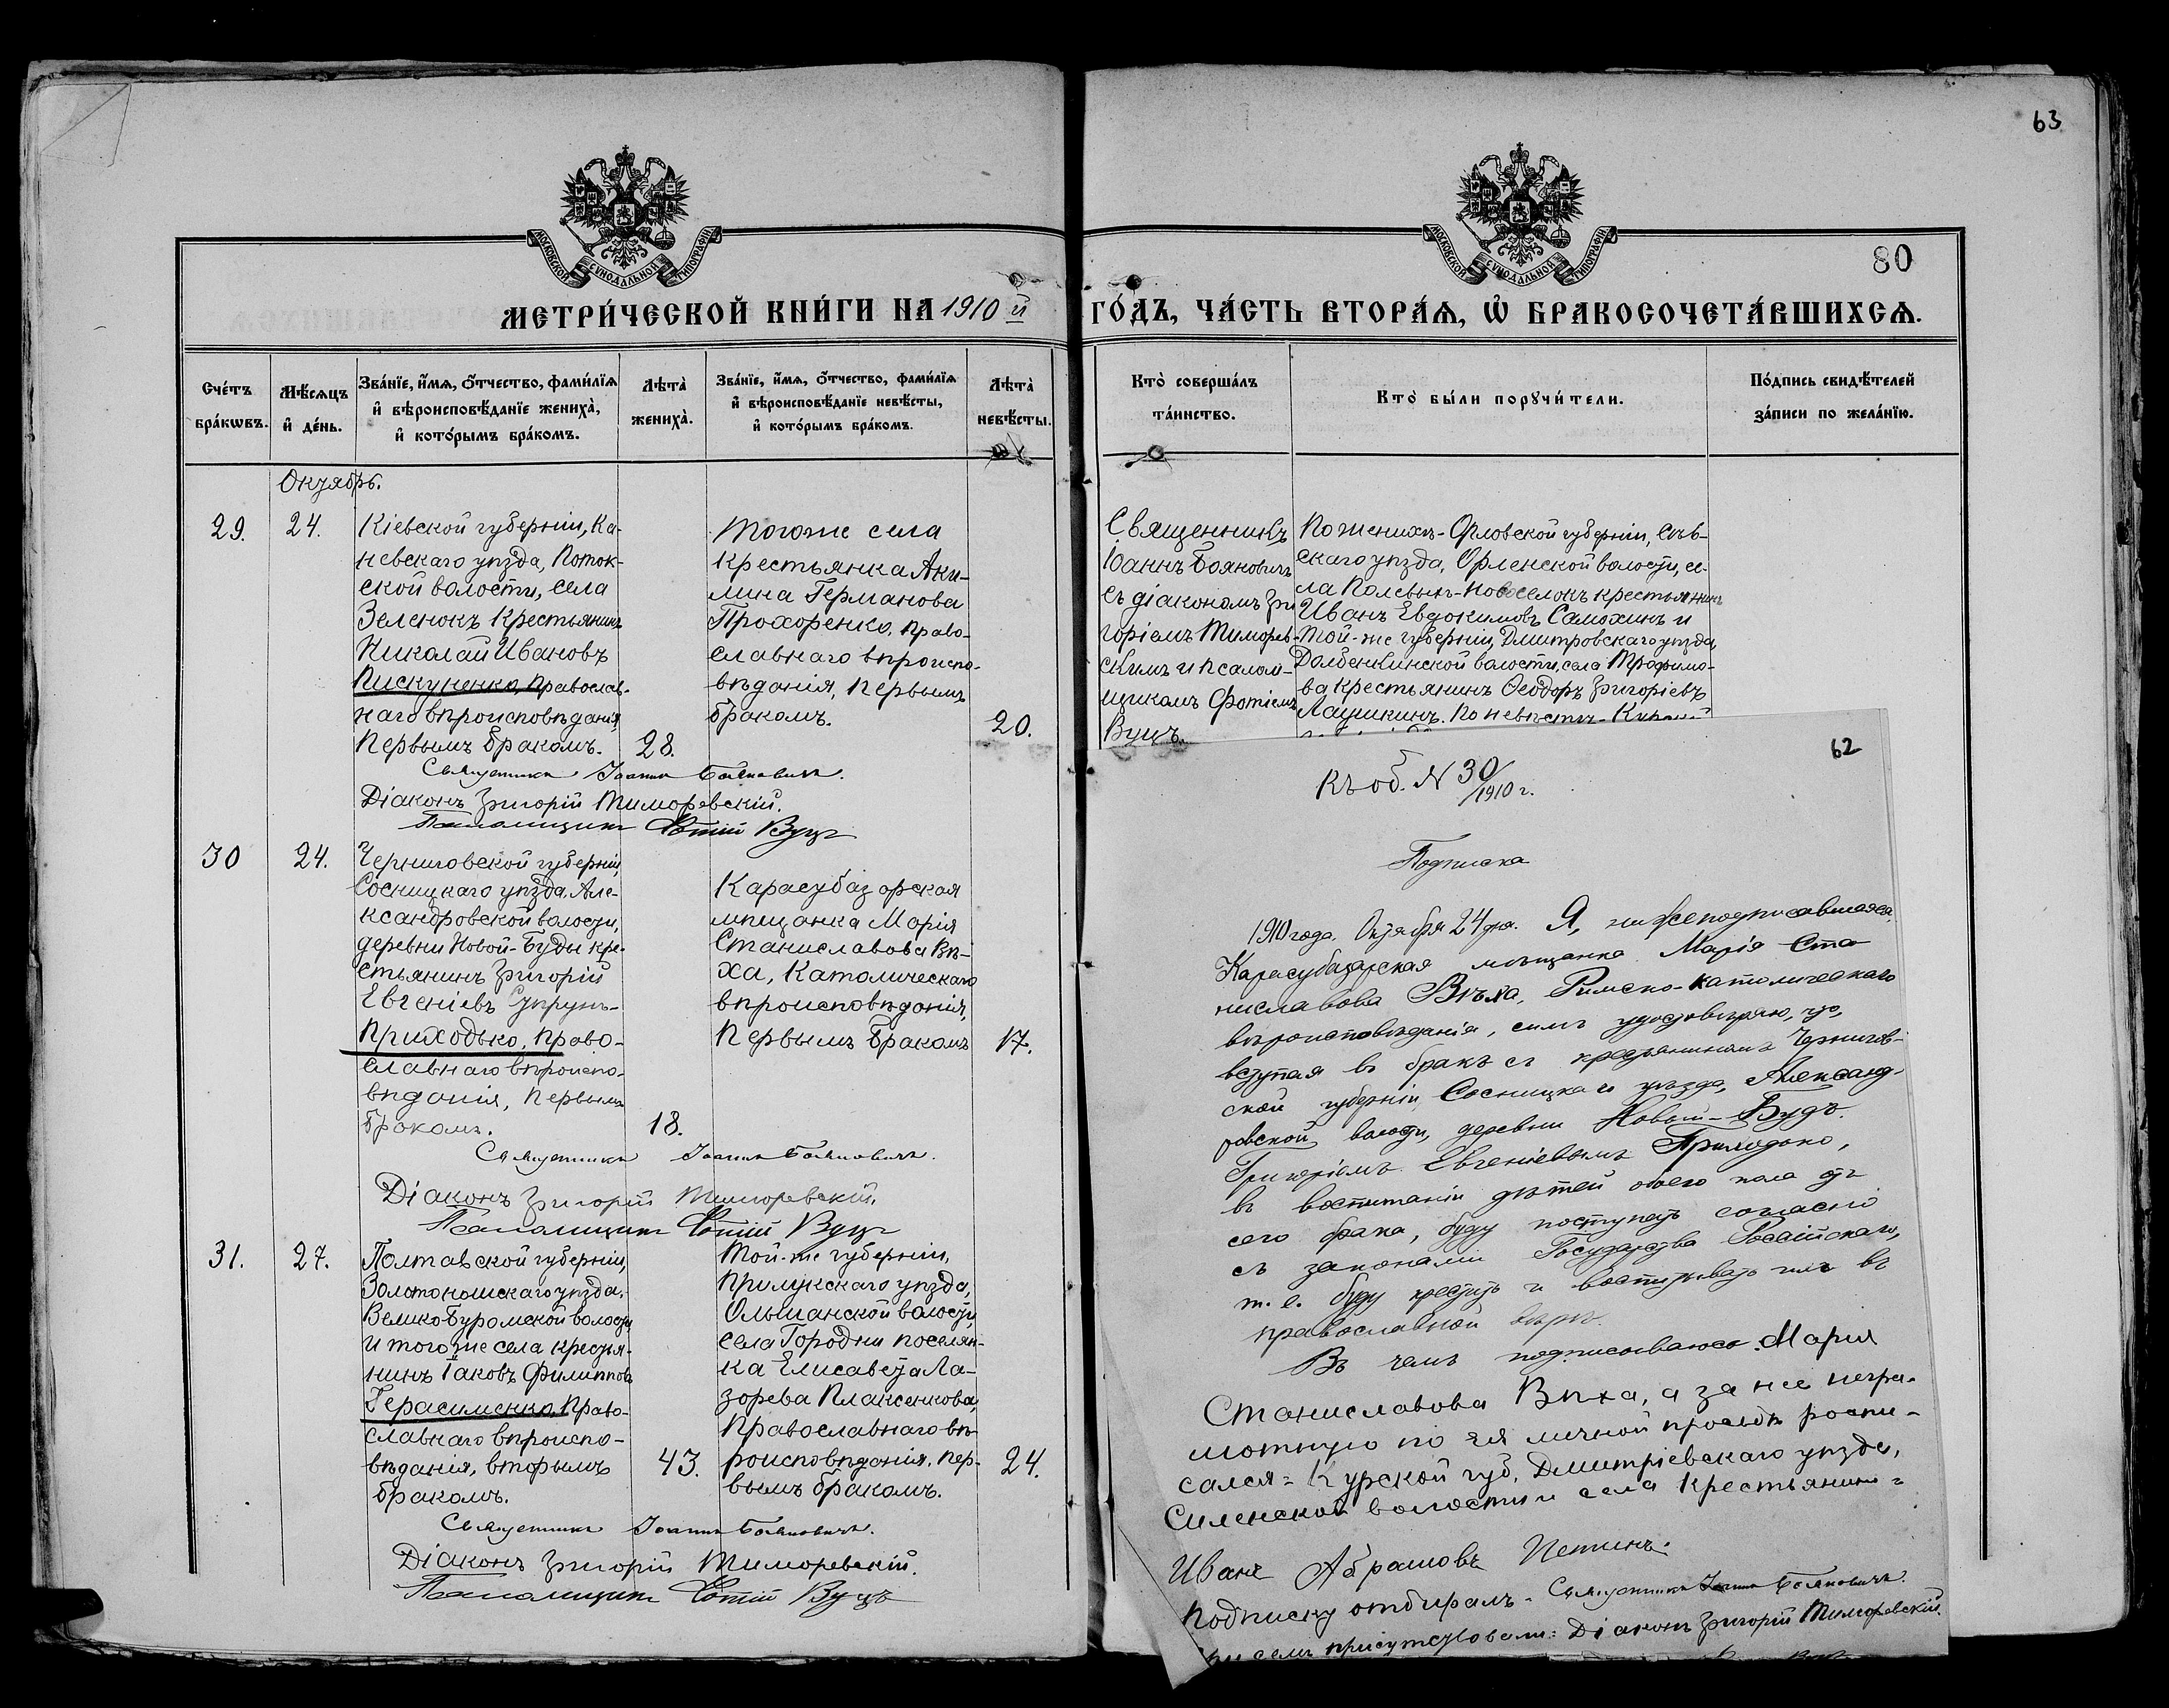 63
МОСКОВСКОЙ СѴНОДАЛЬНОЙ ТИПОГРАФІИ
МОСКОВСКОЙ СѴНОДАЛЬНОЙ ТИПОГРАФІИ
80
МЕТРИ́ЧЕСКОЙ КНИ́ГИ НА 1910 й
ГО́ДЪ, ЧА́СТЬ ВТОРА́Ѧ, Ѡ҆ БРАКОСОЧЕТА́ВШИХСѦ.
Сче́тъ
бра́кѡвъ.
Мѣ́сѧцъ
и҆ де́нь.
Зва́нїе, и҆́мѧ, ѻ҆́тчество, фами́лїѧ
и҆ вѣроисповѣ́данїе жениха̀,
и҆ кото́рымъ бра́комъ.
Лѣта̀
жениха̀.
Зва́нїе, и҆́мѧ, ѻ҆́тчество, фами́лїѧ
и҆ вѣроисповѣ́данїе невѣ́сты,
и҆ кото́рымъ бра́комъ.
Лѣта̀
невѣ́сты.
Кто̀ соверша́лъ
та́инство.
Кто̀ бы́ли порꙋчи́тели.
По́дпись свидѣ́телей
за́писи по жела́нїю.
Октябрь.
29.
24.
Кіевской губерніи, Ка-
невскаго уѣзда, Поток-
ской волости, села
Зеленокъ крестьянинъ
Николай Ивановъ
Пискуненко, православ-
наго вѣроисповѣданія,
первымъ бракомъ.
28.
Тогоже села
крестьянка Аки-
лина Германова
Прохоренко, право-
славнаго вѣроиспо-
вѣданія, первымъ
бракомъ.
20.
Священникъ
Іоаннъ Бояновичъ
съ діакономъ Гри
горіемъ Тиморев-
скимъ и псалом-
щикомъ Фотіемъ
Вуцъ.
По женихѣ - Орловской губерніи, Сѣв-
скаго уѣзда, Орленской волости, се-
ла Полевыхъ-Новоселокъ крестьянинъ
Иванъ Евдокимовъ Самохинъ и
той-же губерніи, Дмитровскаго уѣзда,
Долбенкинской волости, села Трофимо-
ва крестьянинъ Ѳеодоръ Григоріевъ
Лашкинъ. По невѣстѣ -
Священникъ Іоаннъ Бояновичъ.
Діаконъ Григорій Тиморевскій.
Псаломщикъ Фотій Вуцъ
30
24.
Черниговской губерніи,
Сосницкаго уѣзда, Але-
ксандровской волости,
деревни Новой-Буды кре-
стьянинъ Григорій
Евгеніевъ Супрунъ-
Приходько, право-
славнаго вѣроиспо-
вѣданія, первымъ
бракомъ.
18.
Карасубазарская
мѣщанка Марія
Станиславова Вѣ-
ха, Католическаго
вѣроисповѣданія,
первымъ бракомъ
17.
Священникъ Іоаннъ Бояновичъ.
Діаконъ Григорій Тиморевскій.
Псаломщикъ Фотій Вуцъ
31.
27.
Полтавской губерніи,
Золотоношскаго уѣзда,
Велико-Буромской волости
и того же села крестья-
нинъ Іаковъ Филипповъ
Герасименко, право-
славнаго вѣроиспо-
вѣданія, вторымъ
бракомъ.
43.
Той-же губерніи,
Прилукскаго уѣзда,
Ольшанской волости,
села Городни поселян-
ка Елисавета Ла-
зорева Плаксенкова,
православнаго вѣ-
роисповѣданія, пер-
вымъ бракомъ.
24.
Священникъ Іоаннъ Бояновичъ.
Діаконъ Григорій Тиморевскій.
Псаломщикъ Фотій Вуцъ
62
Къ об. N 30/1910 г.
Подписка
1910 года. Октября 24 дня. Я, нижеподписавшаяся
Карасубазарская мѣщанка Марія Ста
ниславова Вѣха, Римско-католическаго
вѣроисповѣданія, симъ удостовѣряю, что,
вступая въ бракъ съ крестьяниномъ Чернигов-
ской губерніи Сосницкаго уѣзда, Александ-
ровской волости, деревни Новой-Буды
Григоріемъ Евгеніевымъ Приходько,
въ воспитаніи дѣтей обоего пола отъ
сего брака, буду поступать согласно
съ законами Государства Россійскаго,
т. е. буду крестить и воспитывать ихъ въ
православной вѣрѣ.
Въ чемъ подписываюсь. Мария
Станиславова Вѣха, а за нее негра-
мотную по ея личной просьбѣ роспи-
сался = Курской губ. Дмитріевскаго уѣзда,
волости и села крестьянинъ =
Иванъ Абрамовъ Петинъ.
Подписку отбиралъ - Священникъ Іоаннъ Бояновичъ.
При семъ присутствовали: Діаконъ Григорій Тиморевскій.